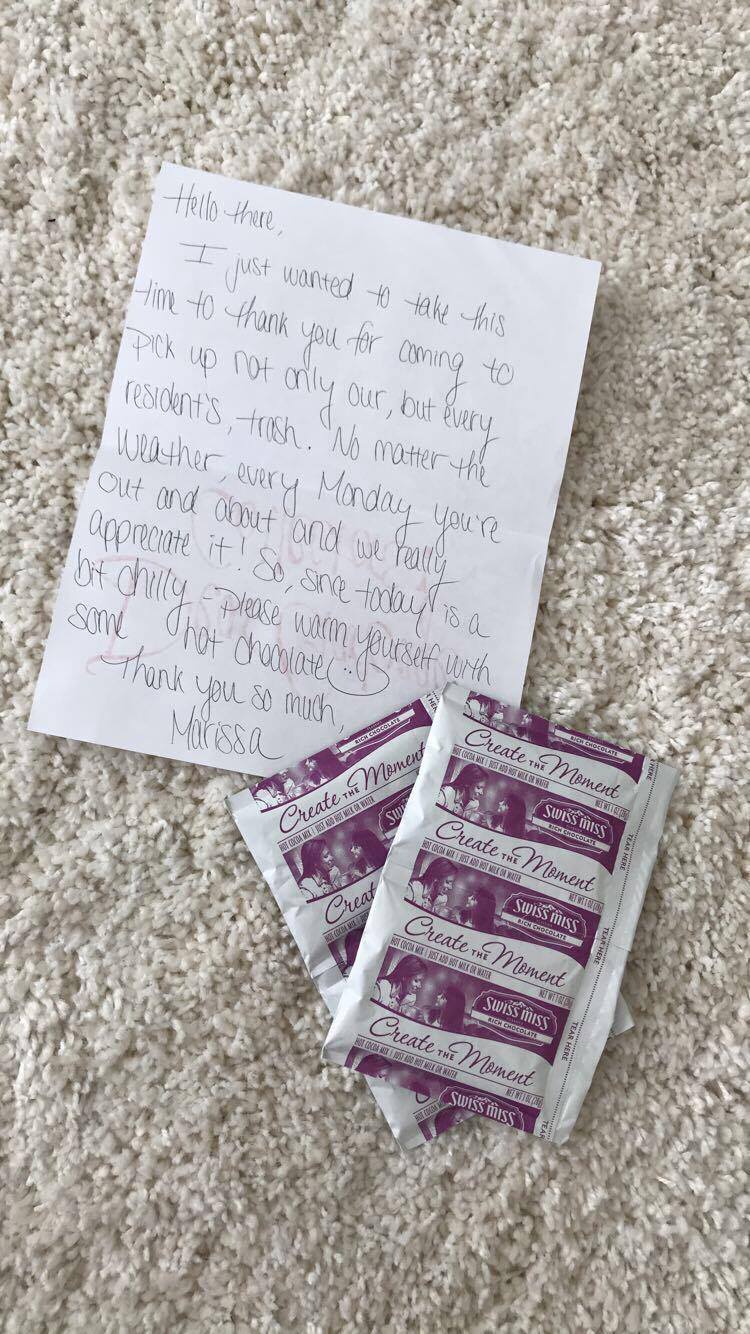 Hello there,
I just wanted to take this
time to thank you for coming to
pick up not only our, but every
resident's, trash. No matter the
weather, every Monday you're
out and about and we really
appreciate it! So, since today is a
bit chilly - please warm yourself with
some hot chocolate
Thank you so much,
Marissa
RICH CHOCOLATE
Create THE Moment
HOT COCOA MIX | JUST ADD HOT MILK OR WATER
SWISS MISS
Create
RICH CHOCOLATE
Create THE Moment
HOT COCOA MIX | JUST ADD HOT MILK OR WATER
NET WT 1 OZ (28g)
SWISS MISS
RICH CHOCOLATE
TEAR HERE
Create THE Moment
HOT COCOA MIX | JUST ADD HOT MILK OR WATER
NET WT 1 OZ (28g)
SWISS MISS
RICH CHOCOLATE
TEAR HERE
Create THE Moment
HOT COCOA MIX | JUST ADD HOT MILK OR WATER
NET WT 1 OZ (28g)
SWISS MISS
RICH CHOCOLATE
TEAR HERE
Create THE Moment
HOT COCOA MIX | JUST ADD HOT MILK OR WATER
NET WT 1 OZ (28g)
SWISS MISS